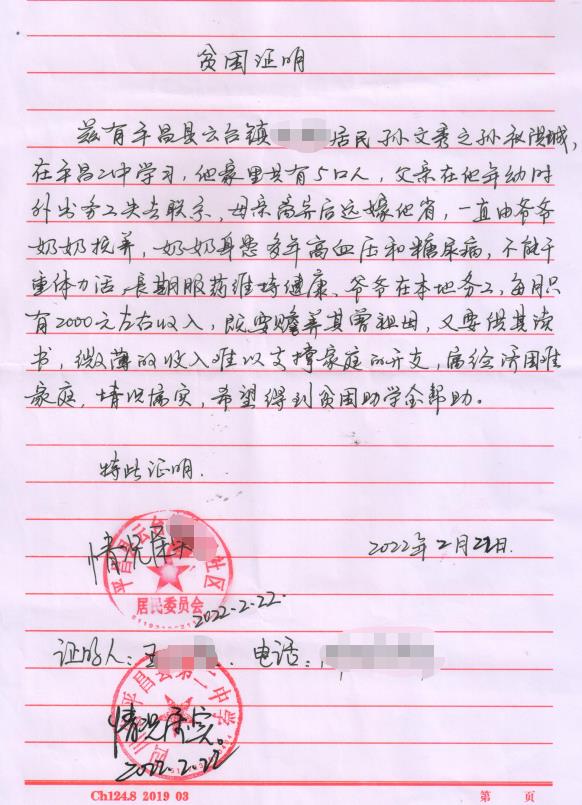 贫困证明
兹有平昌县云台镇 居民孙文秀之孙
在平昌二中学习，他家里共有5口人，父亲在他年幼时
外出务工失去联系，母亲离异后远嫁他省，一直由爷爷
奶奶抚养，奶奶身患多年高血压和糖尿病，不能干
重体力活，长期服药维持健康、爷爷在本地务工，每月只
有2000元左右收入，既要赡养其曾祖母，又要供其读
书，微薄的收入难以支撑家庭的开支，属经济困难
家庭，情况属实，希望得到贫困助学金帮助。
特此证明.
平昌县云台 社区
情况属实
2022年2月22日.
居民委员会
2022.2.22.
证明人：王 . 电话：
平昌县第二中学
情况属实。
2022.2.22
Ch124.8 2019 03 第 页